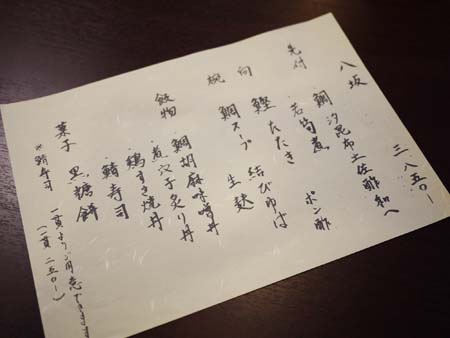 八坂 三八五〇ー
先付 鯛 汐昆布土佐酢和へ
若筍煮
向 鰹たたき ポン酢
椀 鯛スープ 結びゆば
生麩
飯物 鯛胡麻味噌丼
煮穴子炙り丼
鶏すき焼丼
鯖寿司
菓子 黒糖餅
※鯖寿司 一貫よりご用意できます
(一貫 二五〇ー)